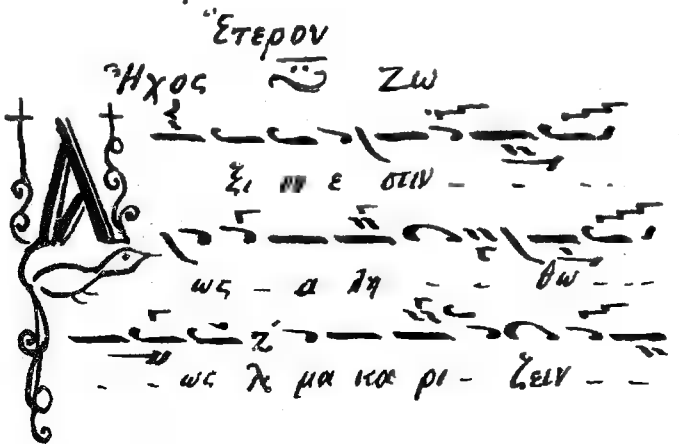 Ἕτερον
Ἦχος Ζω
Α ξι ε στιν - - - -
ως - α λη - - θω - - -
- - ως λς μα κα ρι - ζειν - - -